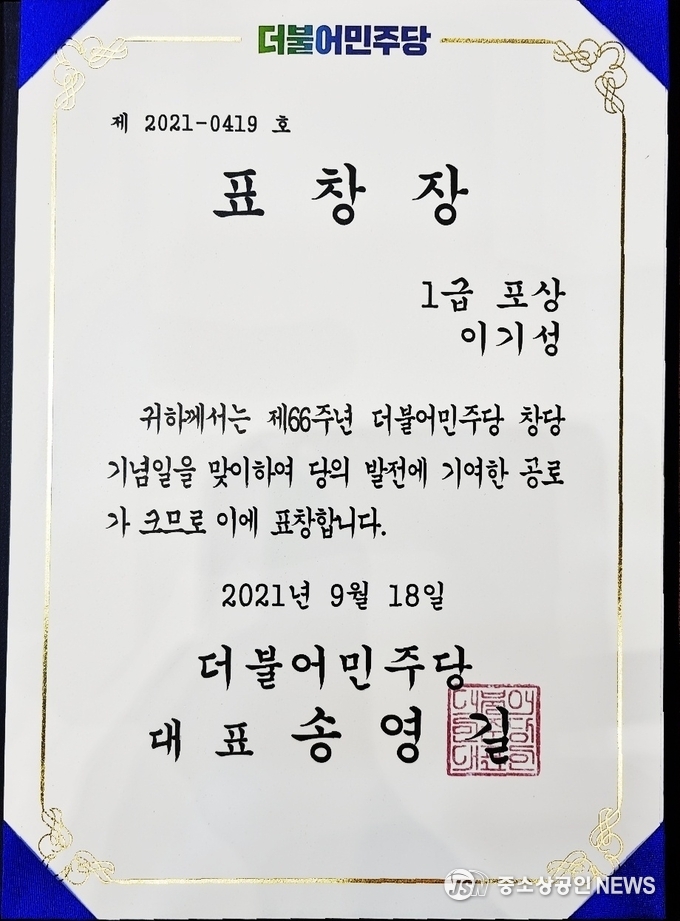 더불어민주당
제 2021-0419 호
표 창 장
1급 포상
이기성
귀하께서는 제66주년 더불어민주당 창당
기념일을 맞이하여 당의 발전에 기여한 공로
가 크므로 이에 표창합니다.
2021년 9월 18일
더불어민주당
대 표 송 영 길
JSN 중소상공인NEWS